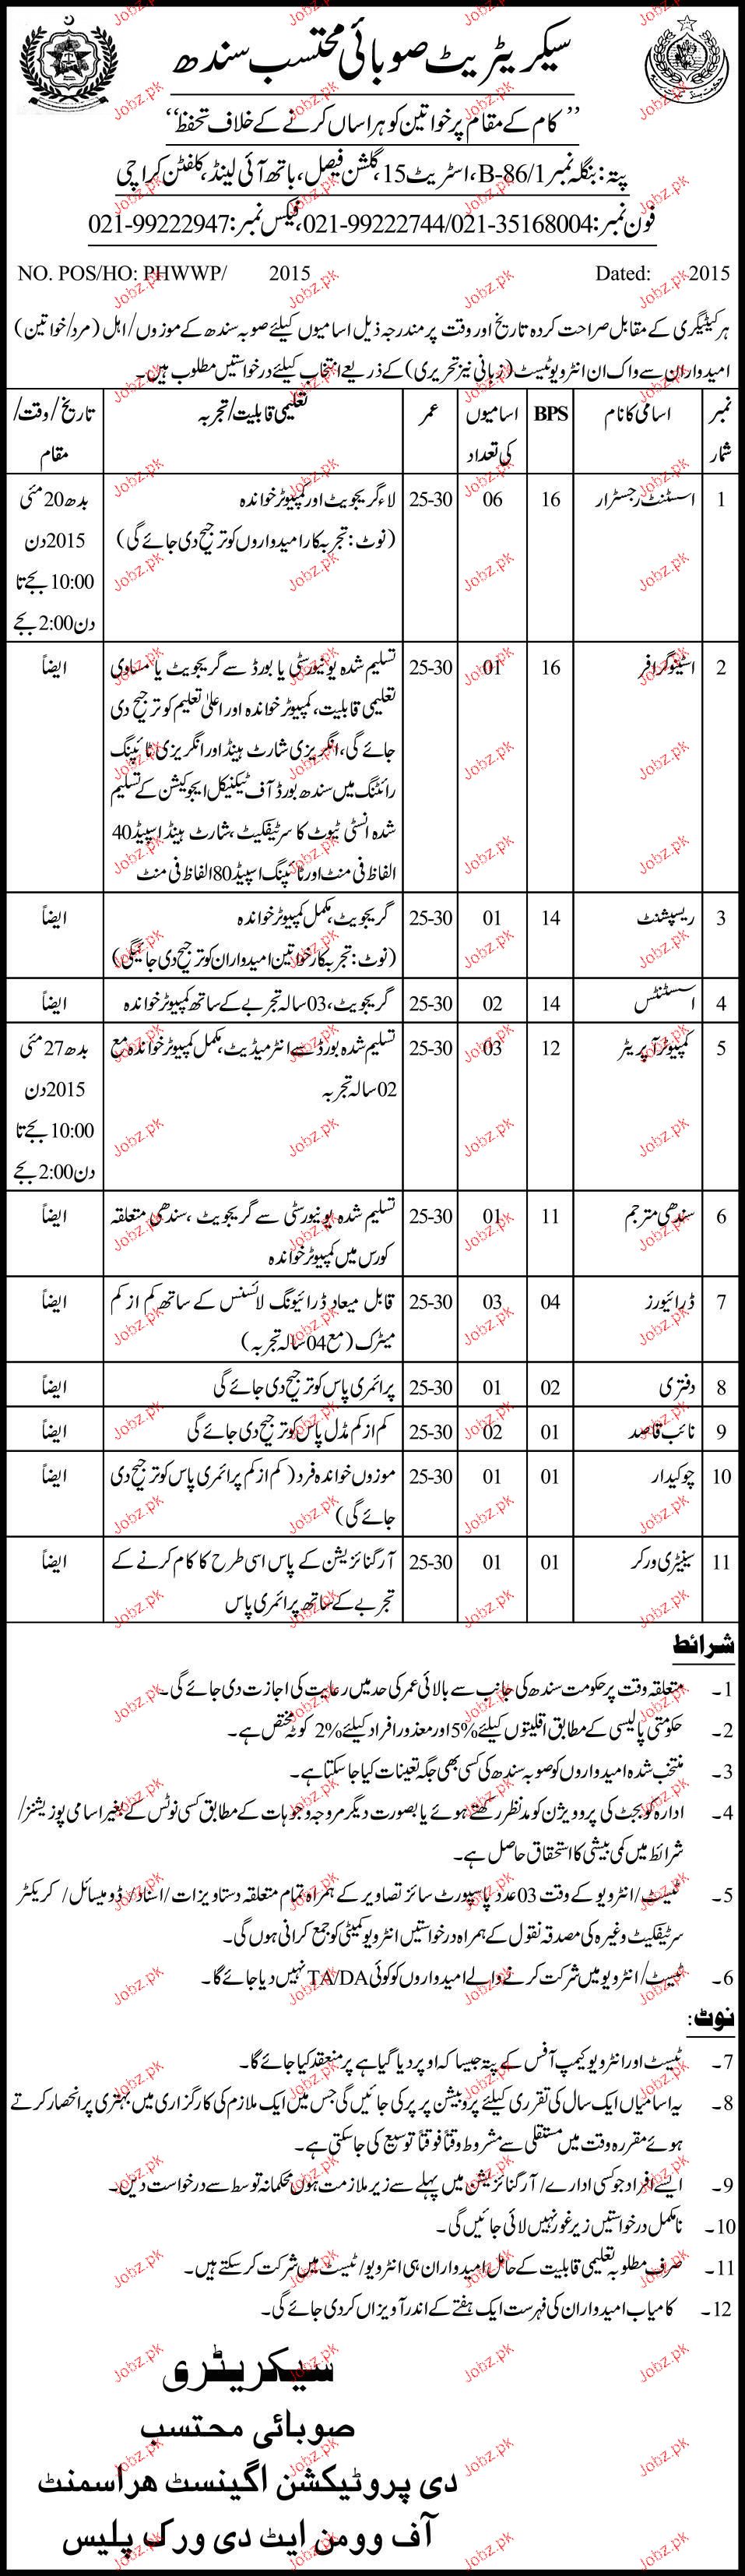 سیکریٹریٹ صوبائی محتسب سندھ
”کام کے مقام پر خواتین کو ہراساں کرنے کے خلاف تحفظ“
پتہ: بنگلہ نمبر B-86/1، اسٹریٹ 15، گلشن فیصل، باتھ آئی لینڈ، کلفٹن کراچی
فون نمبر: 021-99222744/021-35168004، فیکس نمبر: 021-99222947
NO. POS/HO: PHWWP/ 2015 Dated: 2015
ہر کیٹیگری کے مقابل صراحت کردہ تاریخ اور وقت پر مندرجہ ذیل اسامیوں کیلئے صوبہ سندھ کے موزوں/اہل (مرد/خواتین)
امیدواران سے واک ان انٹرویو ٹیسٹ (زبانی نیز تحریری) کے ذریعے انتخاب کیلئے درخواستیں مطلوب ہیں۔
نمبر شمار | اسامی کا نام | BPS | اسامیوں کی تعداد | عمر | تعلیمی قابلیت/تجربہ | تاریخ/وقت/مقام
1 | اسسٹنٹ رجسٹرار | 16 | 06 | 25-30 | لاء گریجویٹ اور کمپیوٹر خواندہ | بدھ 20 مئی
(نوٹ: تجربہ کار امیدواروں کو ترجیح دی جائے گی) | 2015 دن
10:00 بجے تا
دن 2:00 بجے
2 | اسٹینو گرافر | 16 | 01 | 25-30 | تسلیم شدہ یونیورسٹی یا بورڈ سے گریجویٹ یا مساوی | ایضاً
تعلیمی قابلیت، کمپیوٹر خواندہ اور اعلیٰ تعلیم کو ترجیح دی
جائے گی، انگریزی شارٹ ہینڈ اور انگریزی ٹائپنگ
رائٹنگ میں سندھ بورڈ آف ٹیکنیکل ایجوکیشن کے تسلیم
شدہ انسٹی ٹیوٹ کا سرٹیفکیٹ، شارٹ ہینڈ اسپیڈ 40
الفاظ فی منٹ اور ٹائپنگ اسپیڈ 80 الفاظ فی منٹ
3 | ریسپشنٹ | 14 | 01 | 25-30 | گریجویٹ، مکمل کمپیوٹر خواندہ | ایضاً
(نوٹ: تجربہ کار خواتین امیدواران کو ترجیح دی جائیگی)
4 | اسسٹنٹس | 14 | 02 | 25-30 | گریجویٹ، 03 سالہ تجربے کے ساتھ کمپیوٹر خواندہ | ایضاً
5 | کمپیوٹر آپریٹر | 12 | 03 | 25-30 | تسلیم شدہ بورڈ سے انٹرمیڈیٹ، مکمل کمپیوٹر خواندہ مع | بدھ 27 مئی
02 سالہ تجربہ | 2015 دن
10:00 بجے تا
دن 2:00 بجے
6 | سندھی مترجم | 11 | 01 | 25-30 | تسلیم شدہ یونیورسٹی سے گریجویٹ، سندھی متعلقہ | ایضاً
کورس میں کمپیوٹر خواندہ
7 | ڈرائیورز | 04 | 03 | 25-30 | قابل میعاد ڈرائیونگ لائسنس کے ساتھ کم از کم | ایضاً
میٹرک (مع 04 سالہ تجربہ)
8 | دفتری | 02 | 01 | 25-30 | پرائمری پاس کو ترجیح دی جائے گی | ایضاً
9 | نائب قاصد | 01 | 02 | 25-30 | کم از کم مڈل پاس کو ترجیح دی جائے گی | ایضاً
10 | چوکیدار | 01 | 01 | 25-30 | موزوں خواندہ فرد (کم از کم پرائمری پاس کو ترجیح دی | ایضاً
جائے گی)
11 | سینیٹری ورکر | 01 | 01 | 25-30 | آرگنائزیشن کے پاس اسی طرح کا کام کرنے کے | ایضاً
تجربے کے ساتھ پرائمری پاس
شرائط
1۔ متعلقہ وقت پر حکومت سندھ کی جانب سے بالائی عمر کی حد میں رعایت کی اجازت دی جائے گی۔
2۔ حکومتی پالیسی کے مطابق اقلیتوں کیلئے 5% اور معذور افراد کیلئے 2% کوٹہ مختص ہے۔
3۔ منتخب شدہ امیدواروں کو صوبہ سندھ کی کسی بھی جگہ تعینات کیا جا سکتا ہے۔
4۔ ادارہ کو بجٹ کی پروویژن کو مدنظر رکھتے ہوئے یا بصورت دیگر مروجہ وجوہات کے مطابق کسی نوٹس کے بغیر اسامی پوزیشنز/
شرائط میں کمی بیشی کا استحقاق حاصل ہے۔
5۔ ٹیسٹ/انٹرویو کے وقت 03 عدد پاسپورٹ سائز تصاویر کے ہمراہ تمام متعلقہ دستاویزات/اسناد/ڈومیسائل/کریکٹر
سرٹیفکیٹ وغیرہ کی مصدقہ نقول کے ہمراہ درخواستیں انٹرویو کمیٹی کو جمع کرانی ہوں گی۔
6۔ ٹیسٹ/انٹرویو میں شرکت کرنے والے امیدواروں کو کوئی TA/DA نہیں دیا جائے گا۔
نوٹ:
7۔ ٹیسٹ اور انٹرویو کیمپ آفس کے پتہ جیسا کہ اوپر دیا گیا ہے پر منعقد کیا جائے گا۔
8۔ یہ اسامیاں ایک سال کی تقرری کیلئے پروبیشن پر پر کی جائیں گی جس میں ایک ملازم کی کارگزاری میں بہتری پر انحصار کرتے
ہوئے مقررہ وقت میں مستقلی سے مشروط وقتاً فوقتاً توسیع کی جا سکتی ہے۔
9۔ ایسے افراد جو کسی ادارے/آرگنائزیشن میں پہلے سے زیر ملازمت ہوں محکمانہ توسط سے درخواست دیں۔
10۔ نامکمل درخواستیں زیر غور نہیں لائی جائیں گی۔
11۔ صرف مطلوبہ تعلیمی قابلیت کے حامل امیدواران ہی انٹرویو/ٹیسٹ میں شرکت کر سکتے ہیں۔
12۔ کامیاب امیدواران کی فہرست ایک ہفتے کے اندر آویزاں کر دی جائے گی۔
سیکریٹری
صوبائی محتسب
دی پروٹیکشن اگینسٹ ہراسمنٹ
آف وومن ایٹ دی ورک پلیس